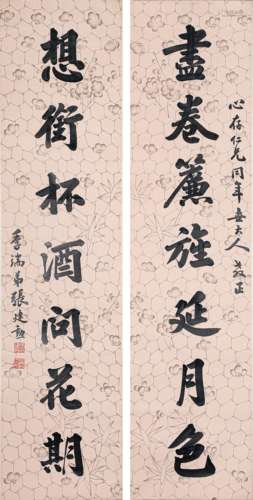 心存仁兄同年大人教正
盡卷簾旌延月色
想銜杯酒問花期
季端弟張建勳